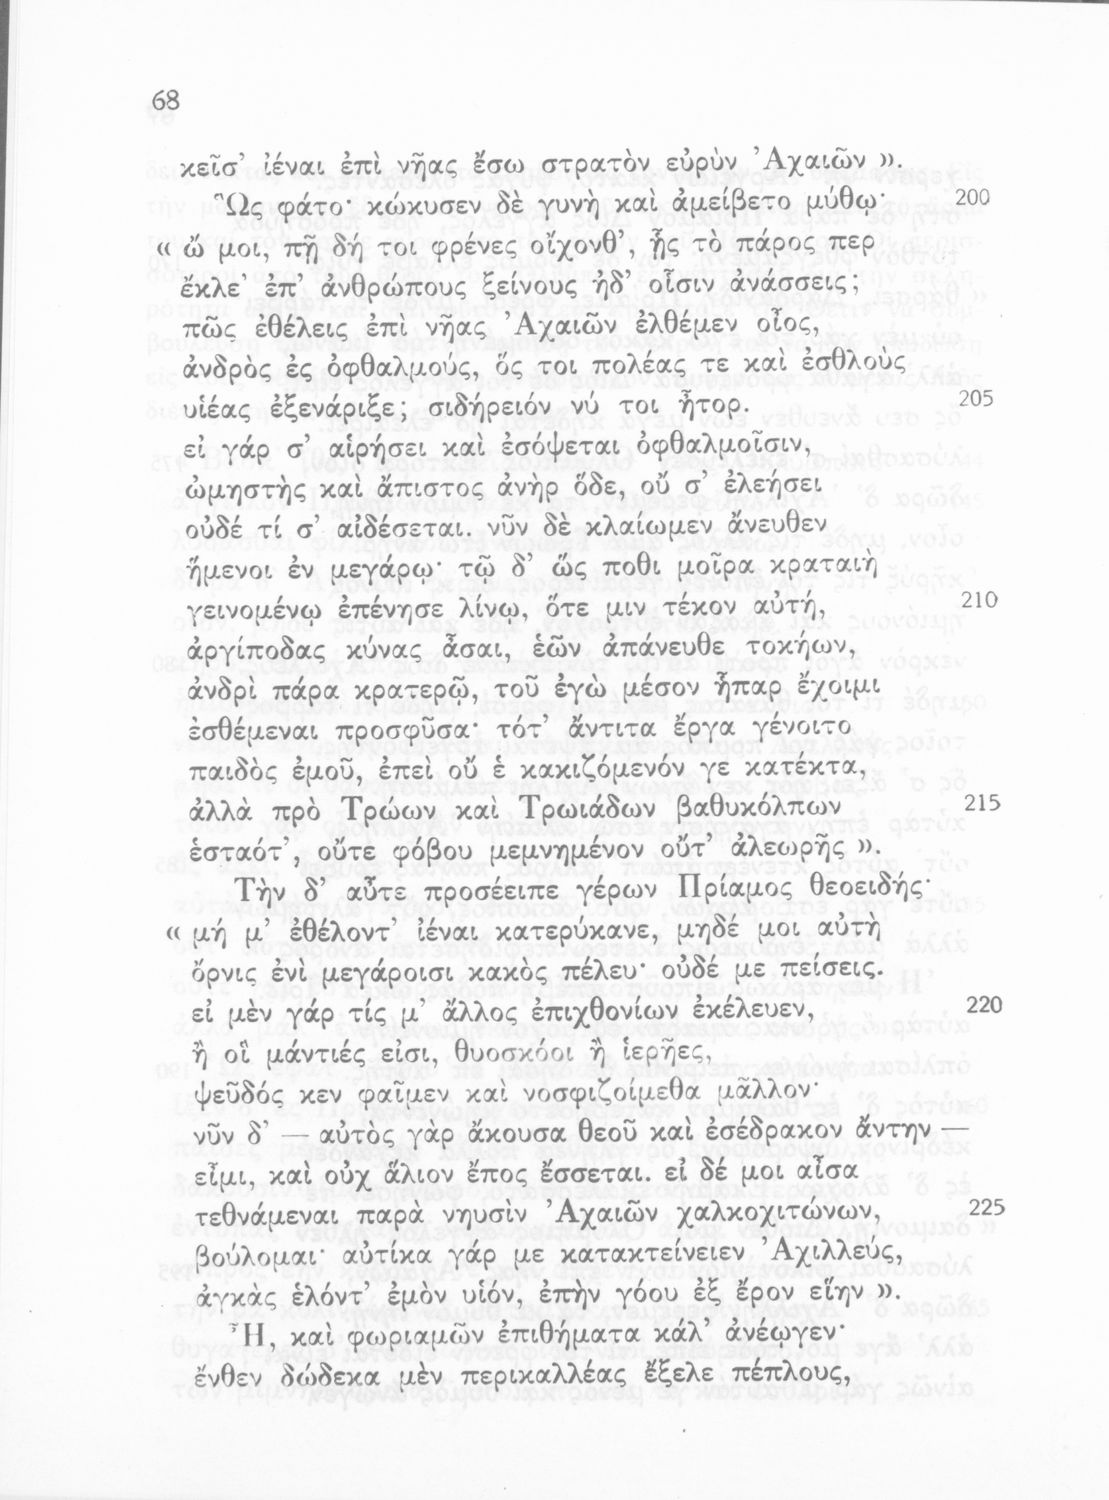 68
κεῖσ’ ἰέναι ἐπὶ νῆας ἔσω στρατὸν εὐρὺν Ἀχαιῶν ».
Ὣς φάτο· κώκυσεν δὲ γυνὴ καὶ ἀμείβετο μύθῳ· 200
« ὤ μοι, πῇ δή τοι φρένες οἴχονθ’, ᾗς τὸ πάρος περ
ἔκλε’ ἐπ’ ἀνθρώπους ξείνους ἠδ’ οἷσιν ἀνάσσεις;
πῶς ἐθέλεις ἐπὶ νῆας Ἀχαιῶν ἐλθέμεν οἶος,
ἀνδρὸς ἐς ὀφθαλμούς, ὅς τοι πολέας τε καὶ ἐσθλοὺς
υἱέας ἐξενάριξε; σιδήρειόν νύ τοι ἦτορ. 205
εἰ γάρ σ’ αἱρήσει καὶ ἐσόψεται ὀφθαλμοῖσιν,
ὠμηστὴς καὶ ἄπιστος ἀνὴρ ὅδε, οὔ σ’ ἐλεήσει
οὐδέ τί σ’ αἰδέσεται. νῦν δὲ κλαίωμεν ἄνευθεν
ἥμενοι ἐν μεγάρῳ· τῷ δ’ ὥς ποθι μοῖρα κραταιὴ
γεινομένῳ ἐπένησε λίνῳ, ὅτε μιν τέκον αὐτή, 210
ἀργίποδας κύνας ἆσαι, ἑῶν ἀπάνευθε τοκήων,
ἀνδρὶ πάρα κρατερῷ, τοῦ ἐγὼ μέσον ἧπαρ ἔχοιμι
ἐσθέμεναι προσφῦσα· τότ’ ἄντιτα ἔργα γένοιτο
παιδὸς ἐμοῦ, ἐπεὶ οὔ ἑ κακιζόμενόν γε κατέκτα,
ἀλλὰ πρὸ Τρώων καὶ Τρωιάδων βαθυκόλπων 215
ἑσταότ’, οὔτε φόβου μεμνημένον οὔτ’ ἀλεωρῆς ».
Τὴν δ’ αὖτε προσέειπε γέρων Πρίαμος θεοειδής·
« μή μ’ ἐθέλοντ’ ἰέναι κατερύκανε, μηδέ μοι αὐτὴ
ὄρνις ἐνὶ μεγάροισι κακὸς πέλευ· οὐδέ με πείσεις.
εἰ μὲν γάρ τίς μ’ ἄλλος ἐπιχθονίων ἐκέλευεν, 220
ἢ οἳ μάντιές εἰσι, θυοσκόοι ἢ ἱερῆες,
ψεῦδός κεν φαῖμεν καὶ νοσφιζοίμεθα μᾶλλον·
νῦν δ’ — αὐτὸς γὰρ ἄκουσα θεοῦ καὶ ἐσέδρακον ἄντην —
εἶμι, καὶ οὐχ ἅλιον ἔπος ἔσσεται. εἰ δέ μοι αἶσα
τεθνάμεναι παρὰ νηυσὶν Ἀχαιῶν χαλκοχιτώνων, 225
βούλομαι· αὐτίκα γάρ με κατακτείνειεν Ἀχιλλεύς,
ἀγκὰς ἑλόντ’ ἐμὸν υἱόν, ἐπὴν γόου ἐξ ἔρον εἵην ».
Ἦ, καὶ φωριαμῶν ἐπιθήματα κάλ’ ἀνέῳγεν·
ἔνθεν δώδεκα μὲν περικαλλέας ἔξελε πέπλους,